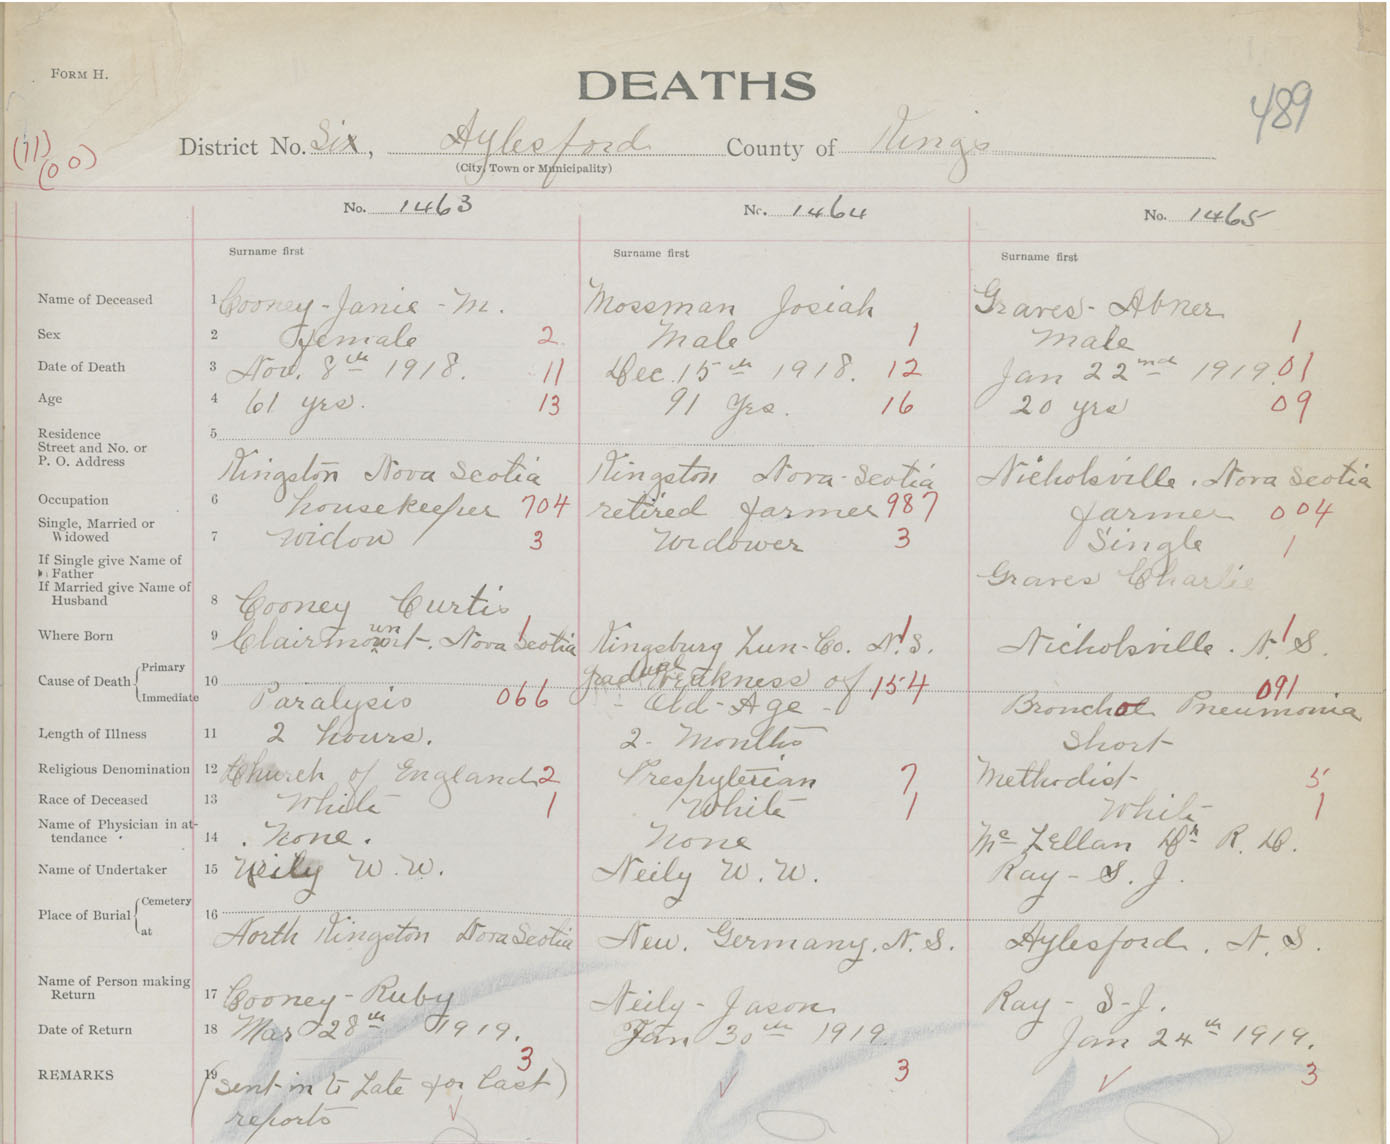 FORM H.
DEATHS
489
(11)
(00)
District No. Six, Aylesford County of Kings
(City, Town or Municipality)
No. 1463 No. 1464 No. 1465
Surname first Surname first Surname first
Name of Deceased 1 Cooney-Janie-M. Mossman Josiah Graves-Abner
Sex 2 Female 2 Male 1 Male 1
Date of Death 3 Nov. 8th 1918. 11 Dec. 15th 1918. 12 Jan 22nd 1919. 01
Age 4 61 yrs. 13 91 Yrs. 16 20 yrs 09
Residence 5
Street and No. or
P. O. Address Kingston Nova Scotia Kingston Nova-Scotia Nicholsville. Nova Scotia
Occupation 6 housekeeper 704 retired farmer 987 farmer 004
Single, Married or
Widowed 7 Widow 3 Widower 3 Single 1
If Single give Name of
Father Graves Charlie
If Married give Name of
Husband 8 Cooney Curtis
Where Born 9 Clairmont. Nova Scotia 1 Kingsburg Lun-Co. N.S. 1 Nicholsville. N.S. 1
Cause of Death { Primary 10 gradual Weakness of 154 091
Immediate Paralysis 066 - Old-Age - Bronchol Pneumonia
Length of Illness 11 2 hours. 2-Months Short
Religious Denomination 12 Church of England 2 Prespyterian 7 Methodist 5
Race of Deceased 13 White 1 White 1 White 1
Name of Physician in at-
tendance 14 . None. None Mc Lellan Dr R. D.
Name of Undertaker 15 Neily W. W. Neily W. W. Ray-S. J.
Place of Burial { Cemetery 16
at North Kingston Nova Scotia New. Germany. N. S. Aylesford. N. S.
Name of Person making
Return 17 Cooney-Ruby Neily-Jason Ray-S-J.
Date of Return 18 Mar 28th 1919. Jan 30th 1919 Jan 24th 1919.
3 3 3
REMARKS 19 (sent in to Late for last)
reports